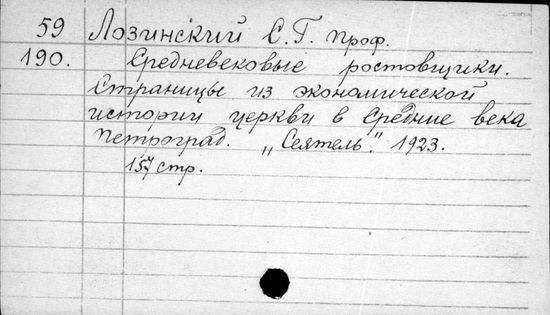 59 Лозинский С.Г. проф.
190. Средневековые ростовщики.
Страницы из экономической
истории церкви в Средние века
Петроград. „Сеятель." 1923.
157 стр.